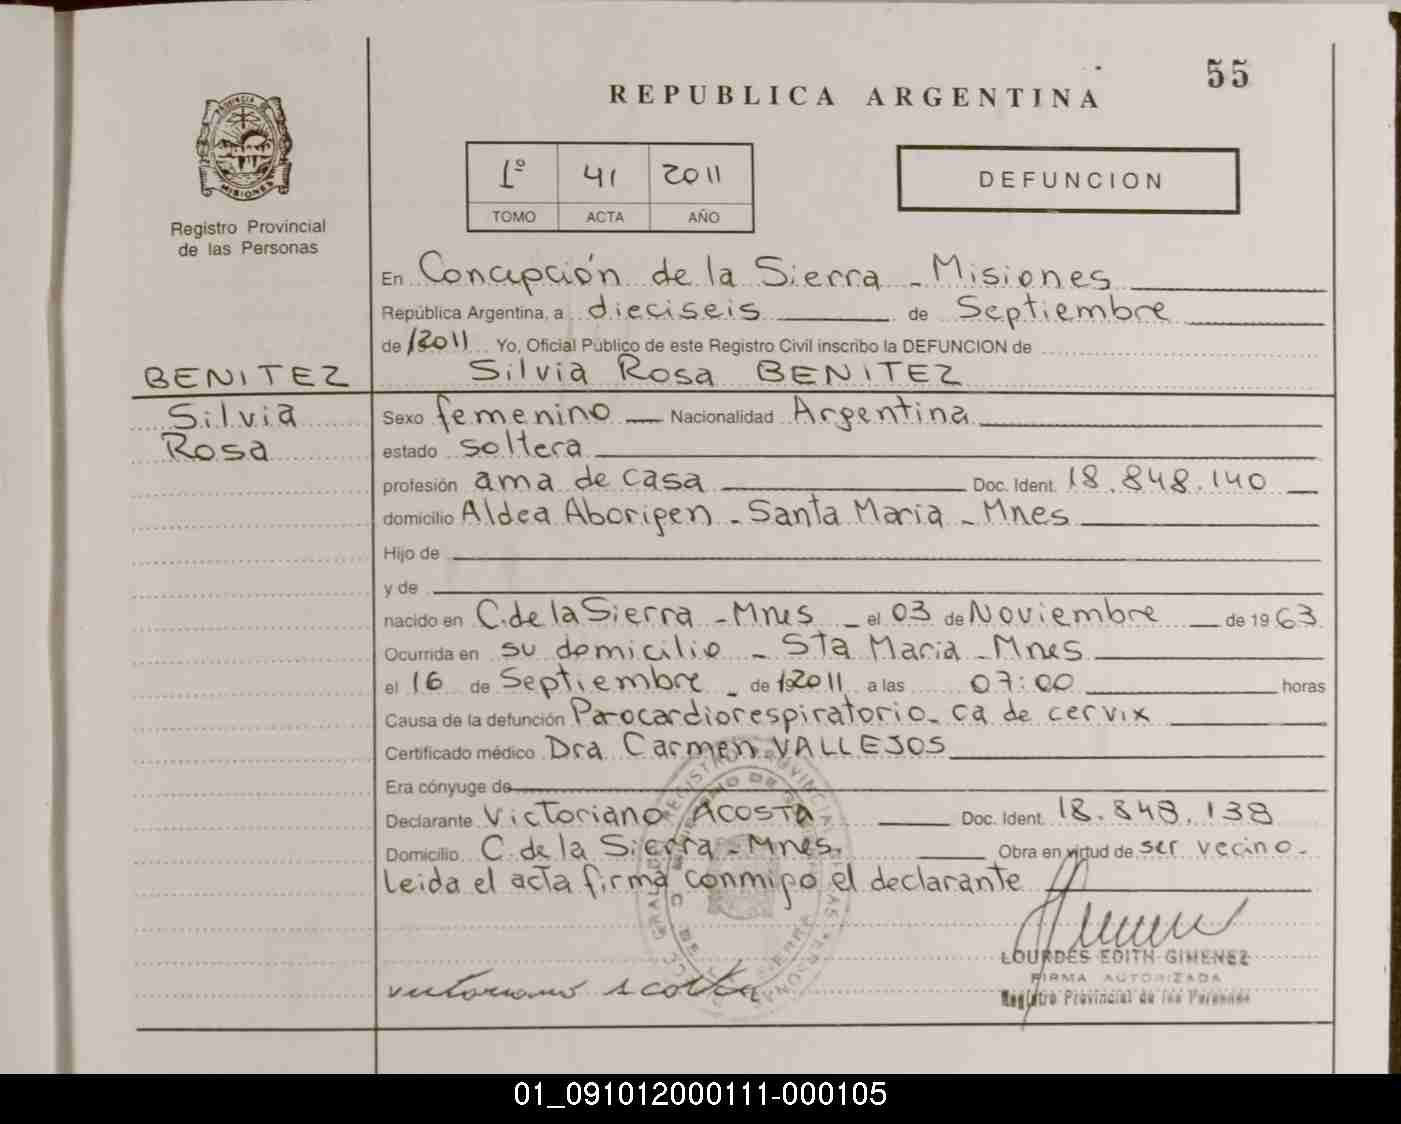 55
REPUBLICA ARGENTINA
PROVINCIA DE
MISIONES
Registro Provincial
de las Personas
1º 41 2011
TOMO ACTA AÑO
DEFUNCION
En Concepción de la Sierra - Misiones
República Argentina, a dieciseis de Septiembre
de 2011 Yo, Oficial Público de este Registro Civil inscribo la DEFUNCION de
Silvia Rosa BENITEZ
BENITEZ
Silvia
Rosa
Sexo femenino Nacionalidad Argentina
estado soltera
profesión ama de casa Doc. Ident. 18.848.140
domicilio Aldea Aborigen - Santa Maria - Mnes
Hijo de
y de
nacido en C. de la Sierra - Mnes - el 03 de Noviembre de 1963
Ocurrida en su domicilio - Sta Maria - Mnes
el 16 de Septiembre - de 2011 a las 07:00 horas
Causa de la defunción Parocardiorespiratorio - ca de cervix
Certificado médico Dra Carmen VALLEJOS
Era cónyuge de
Declarante Victoriano ACOSTA Doc. Ident. 18.848.138
Domicilio C. de la Sierra - Mnes. Obra en virtud de ser vecino -
Leida el acta firma conmigo el declarante
victoriano Acosta
LOURDES EDITH GIMENEZ
FIRMA AUTORIZADA
Registro Provincial de las Personas
01_091012000111-000105